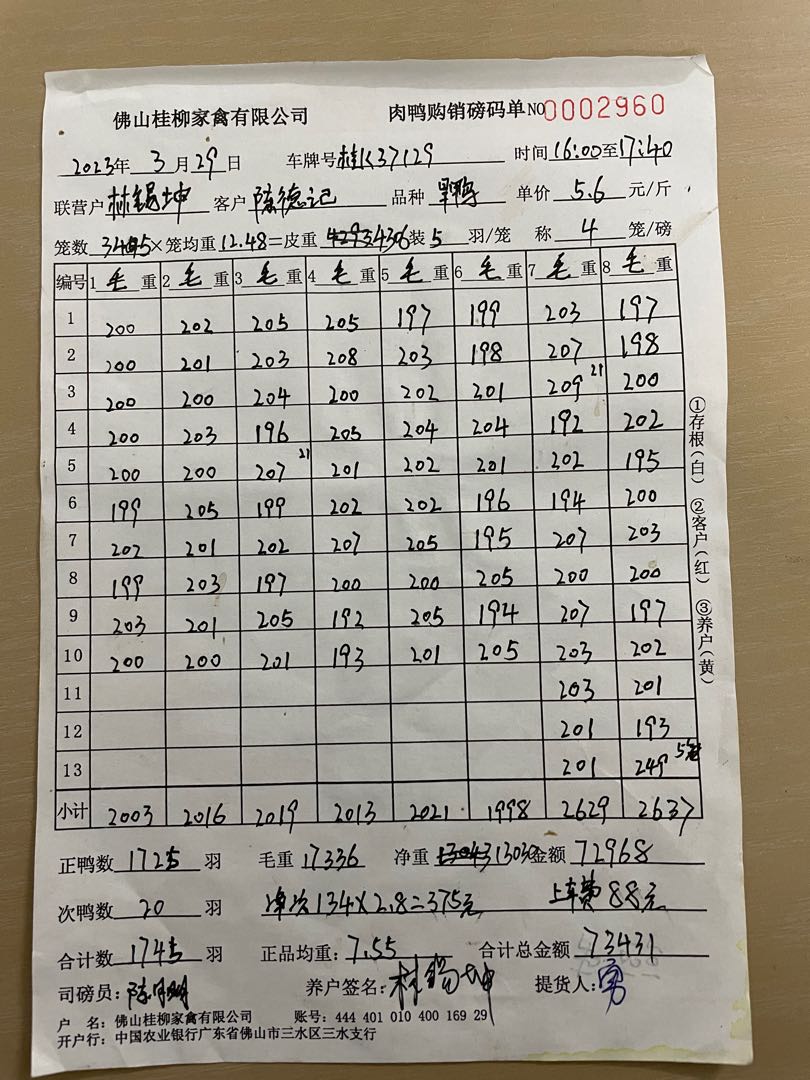 佛山桂柳家禽有限公司 肉鸭购销磅码单 NO 0002960
2023年 3月29日 车牌号桂K37129 时间16:00至17:40
联营户 林锡坤 客户 陈德记 品种 单价 5.6 元/斤
笼数 345×笼均重12.48=皮重 4306 装5 羽/笼 称 4 笼/磅
编号 1毛重 2毛重 3毛重 4毛重 5毛重 6毛重 7毛重 8毛重
1 200 202 205 205 197 199 203 197
2 200 201 203 208 203 198 207 198
3 200 200 204 200 202 201 209 21 200
4 200 203 196 205 204 204 192 202
5 200 200 207 21 201 202 201 202 195
6 199 205 199 202 202 196 194 200
7 202 201 202 207 205 195 207 203
8 199 203 197 200 200 205 200 200
9 203 201 205 192 205 194 207 197
10 200 200 201 193 201 205 203 202
11 203 201
12 201 193
13 201 249 5笼
小计 2003 2016 2019 2013 2021 1998 2629 2637
正鸭数 1725 羽 毛重 17336 净重 13030 金额 72968
次鸭数 20 羽 净次134×2.8=375元 上车费88元
合计数 1745 羽 正品均重:7.55 合计总金额 73431
司磅员: 养户签名:林锡坤 提货人:勇
户 名:佛山桂柳家禽有限公司 账号:444 401 010 400 169 29
开户行:中国农业银行广东省佛山市三水区三水支行
①存根(白) ②客户(红) ③养户(黄)